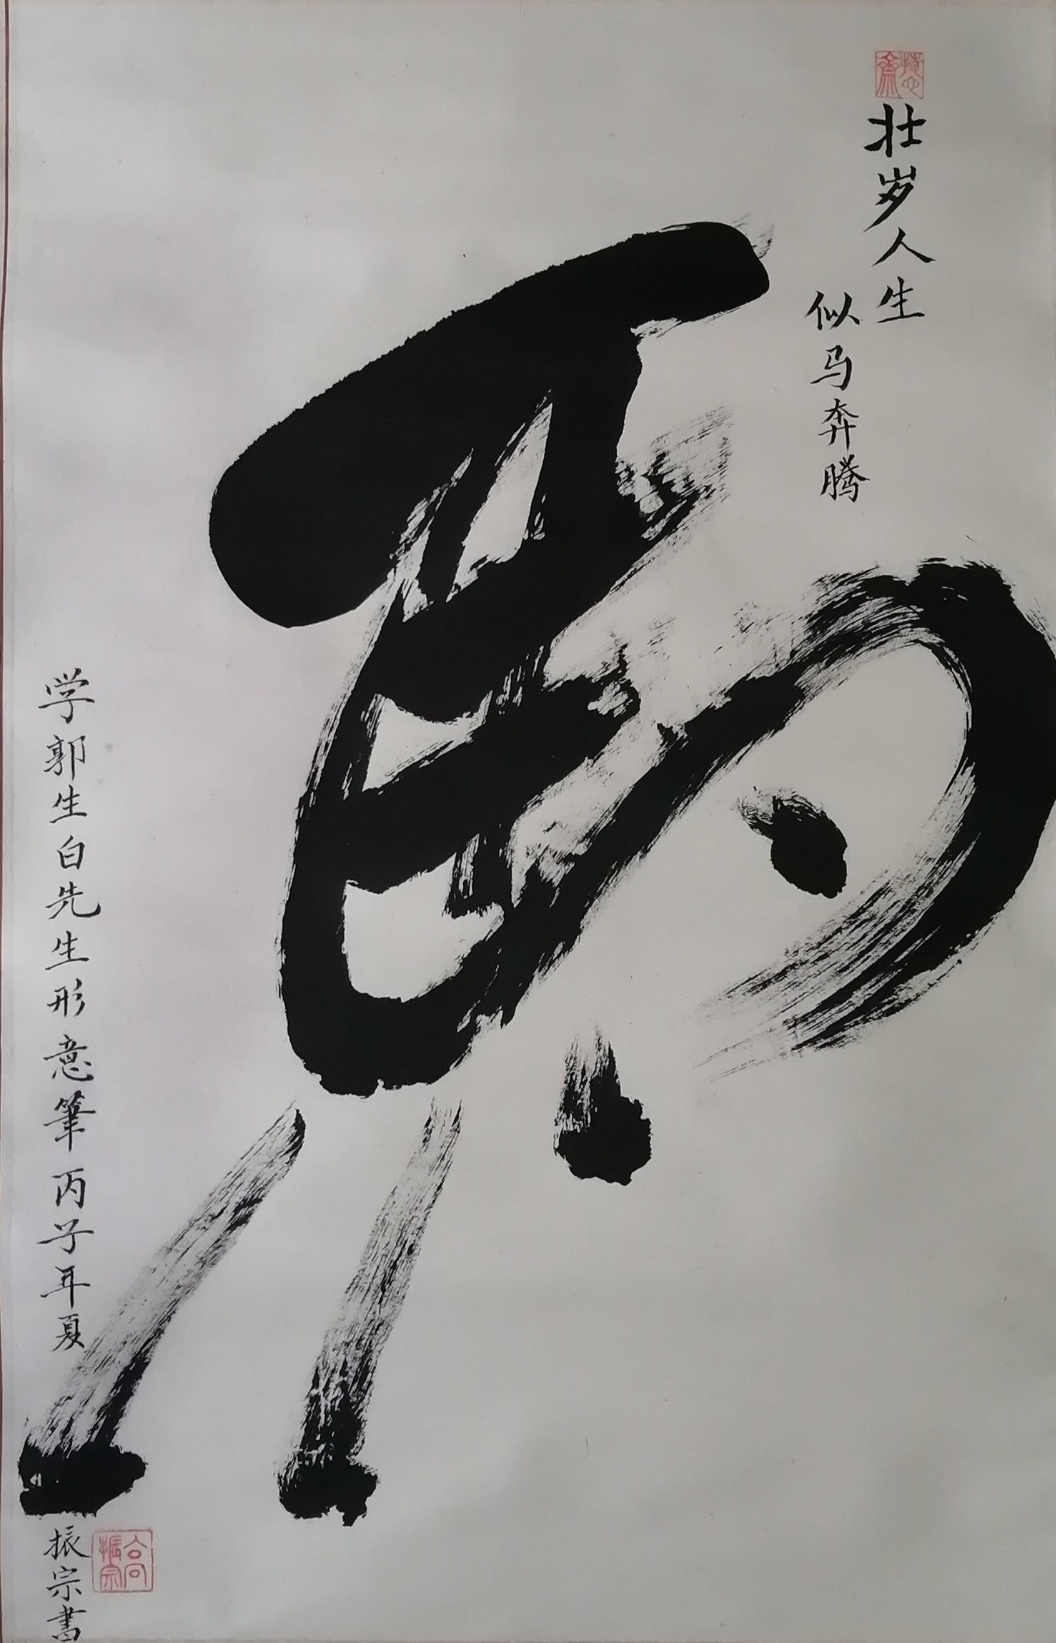 壮岁人生
似马奔腾
馬
学郭生白先生形意筆丙子年夏
振宗書